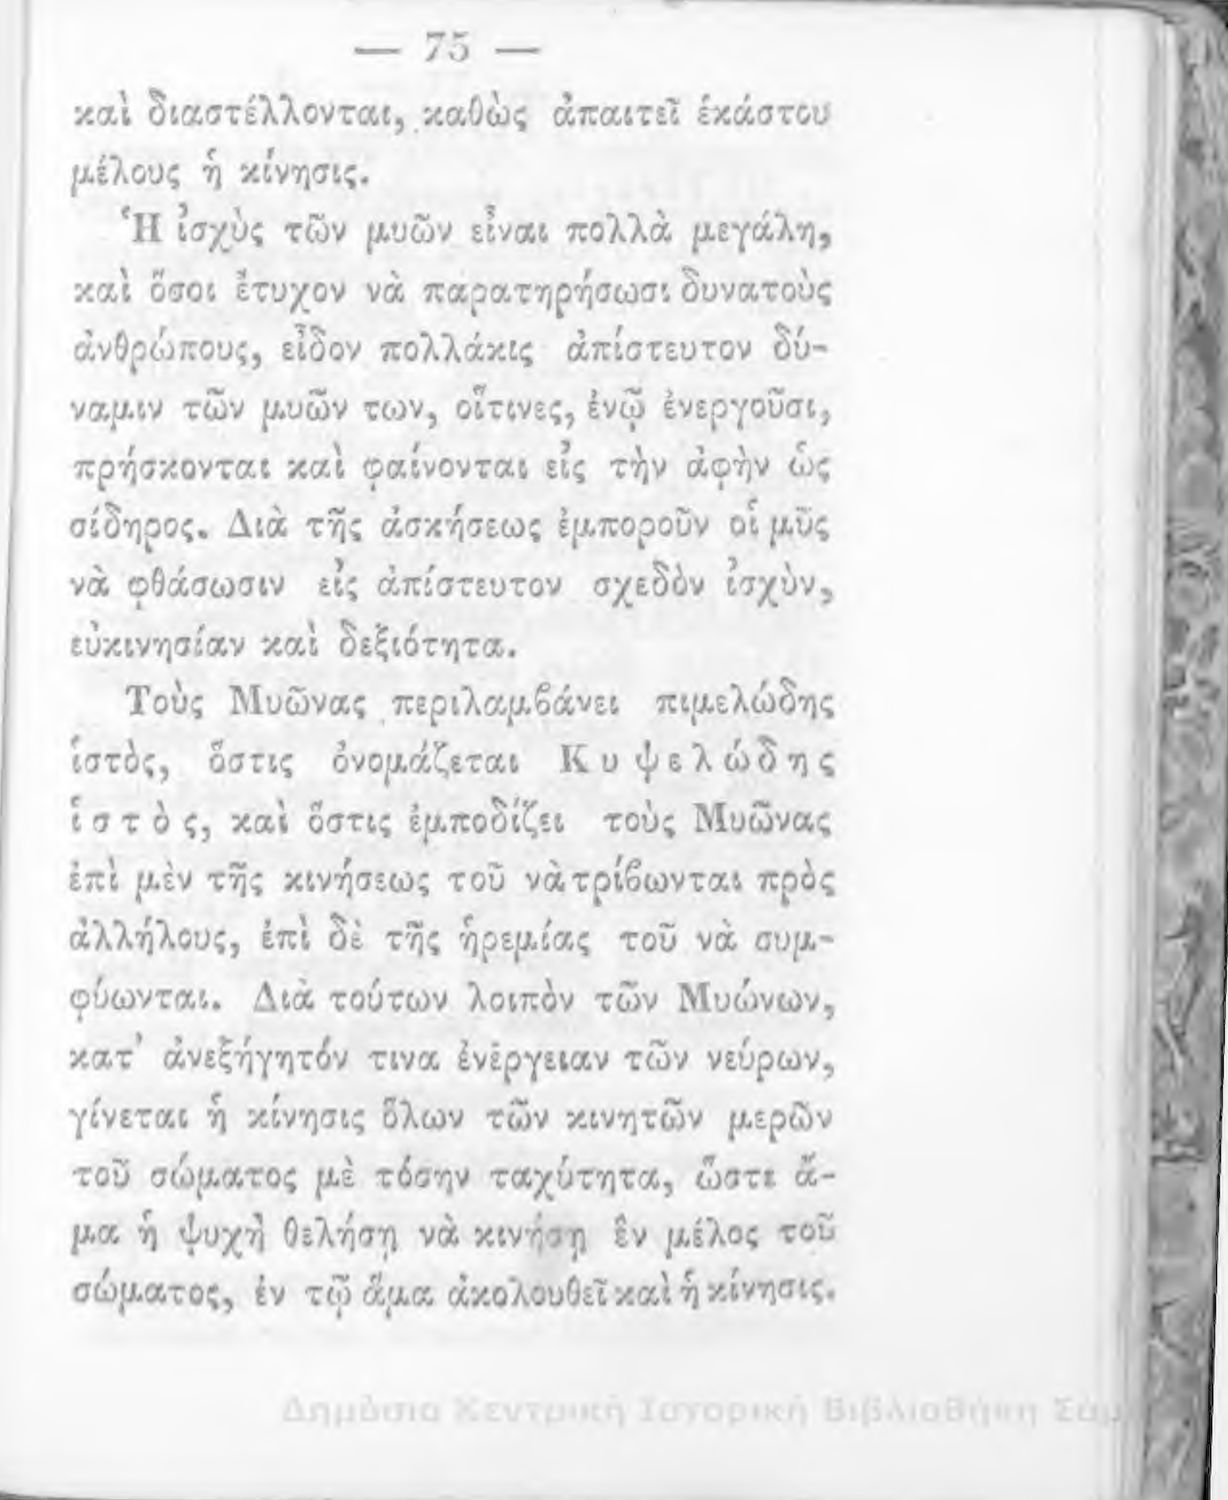 — 75 —
καὶ διαστέλλονται, καθὼς ἀπαιτεῖ ἑκάστου
μέλους ἡ κίνησις.
Ἡ ἰσχὺς τῶν μυῶν εἶναι πολλὰ μεγάλη,
καὶ ὅσοι ἔτυχον νὰ παρατηρήσωσι δυνατοὺς
ἀνθρώπους, εἶδον πολλάκις ἀπίστευτον δύ-
ναμιν τῶν μυῶν των, οἵτινες, ἐνῷ ἐνεργοῦσι,
πρήσκονται καὶ φαίνονται εἰς τὴν ἁφὴν ὡς
σίδηρος. Διὰ τῆς ἀσκήσεως ἐμποροῦν οἱ μῦς
νὰ φθάσωσιν εἰς ἀπίστευτον σχεδὸν ἰσχὺν,
εὐκινησίαν καὶ δεξιότητα.
Τοὺς Μυῶνας περιλαμβάνει πιμελώδης
ἱστὸς, ὅστις ὀνομάζεται Κυψελώδης
ἱστὸς, καὶ ὅστις ἐμποδίζει τοὺς Μυῶνας
ἐπὶ μὲν τῆς κινήσεως τοῦ νὰ τρίβωνται πρὸς
ἀλλήλους, ἐπὶ δὲ τῆς ἠρεμίας τοῦ νὰ συμ-
φύωνται. Διὰ τούτων λοιπὸν τῶν Μυώνων,
κατ' ἀνεξήγητόν τινα ἐνέργειαν τῶν νεύρων,
γίνεται ἡ κίνησις ὅλων τῶν κινητῶν μερῶν
τοῦ σώματος μὲ τόσην ταχύτητα, ὥστε ἅ-
μα ἡ ψυχὴ θελήσῃ νὰ κινήσῃ ἓν μέλος τοῦ
σώματος, ἐν τῷ ἅμα ἀκολουθεῖ καὶ ἡ κίνησις.
Δημόσια Κεντρική Ιστορική Βιβλιοθήκη Σαμ